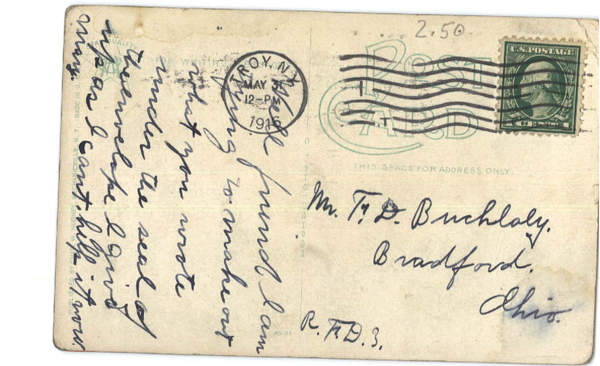 2.50
U.S. POSTAGE
TROY, N.Y.
MAY
12-PM
POST
CARD
THIS SPACE FOR ADDRESS ONLY.
Well friend I am
trying to make out
what you wrote
under the seal of
the envelope I give
up as I cant help it now
Mary
Mr. F. D.
Bradford.
Ohio.
R. F. D. 3.